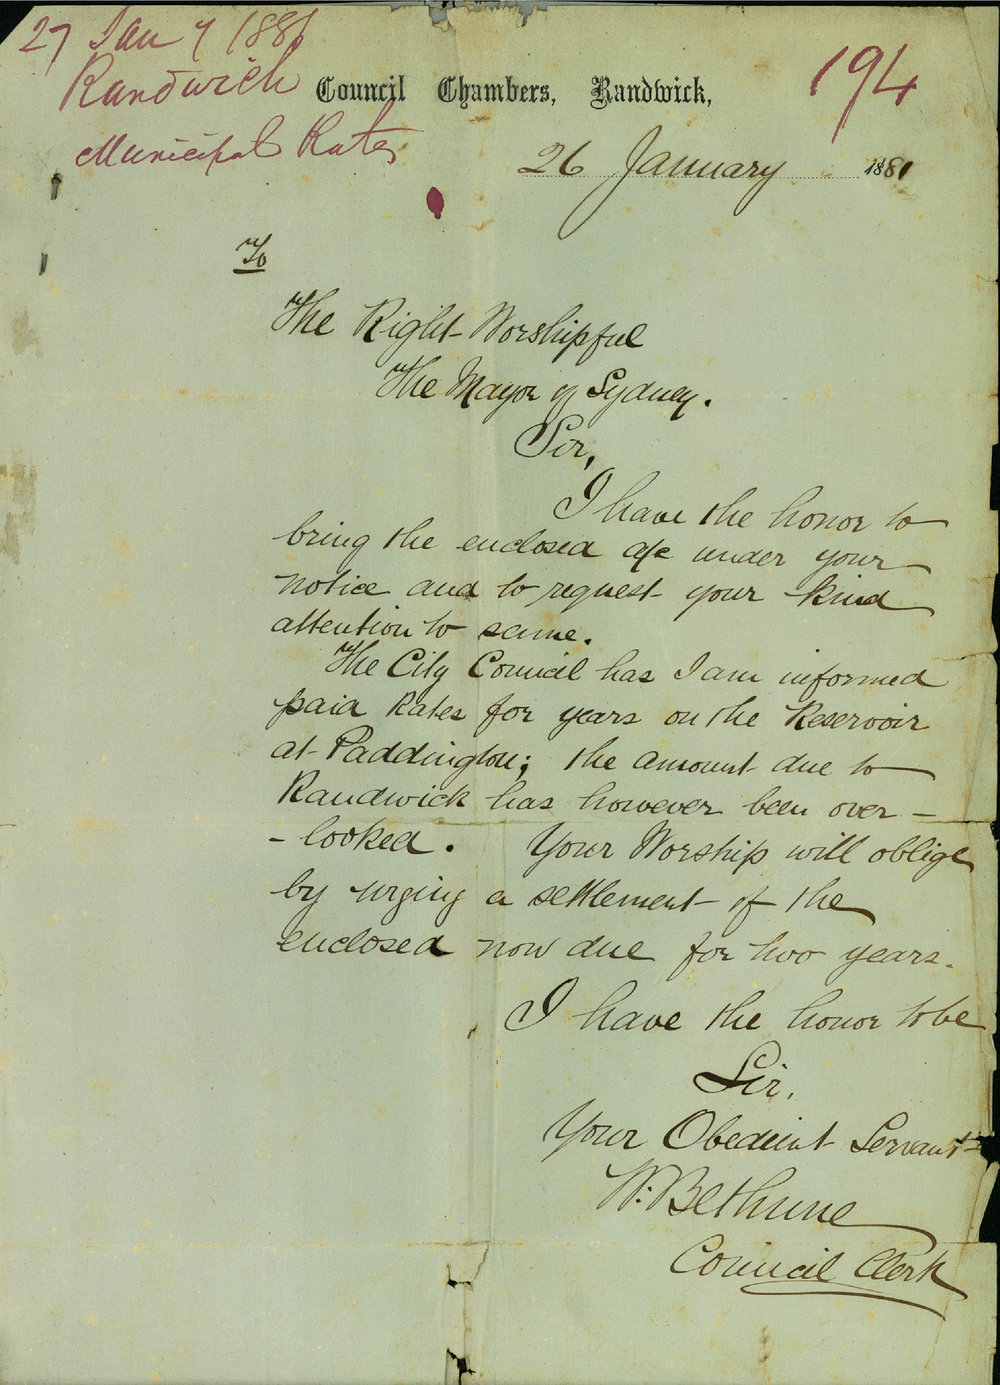 27 Jany 1881
Randwick
Municipal Rates
194
Council Chambers, Randwick,
26 January 1881
To
The Right Worshipful
The Mayor of Sydney.
Sir,
I have the honor to
bring the enclosed a/c under your
notice and to request your kind
attention to same.
The City Council has I am informed
paid Rates for years on the Reservoir
at Paddington; the amount due to
Randwick has however been over-
-looked. Your Worship will oblige
by urging a settlement of the
enclosed now due for two years.
I have the honor to be
Sir.
Your Obedient Servant
W. Bethune
Council Clerk